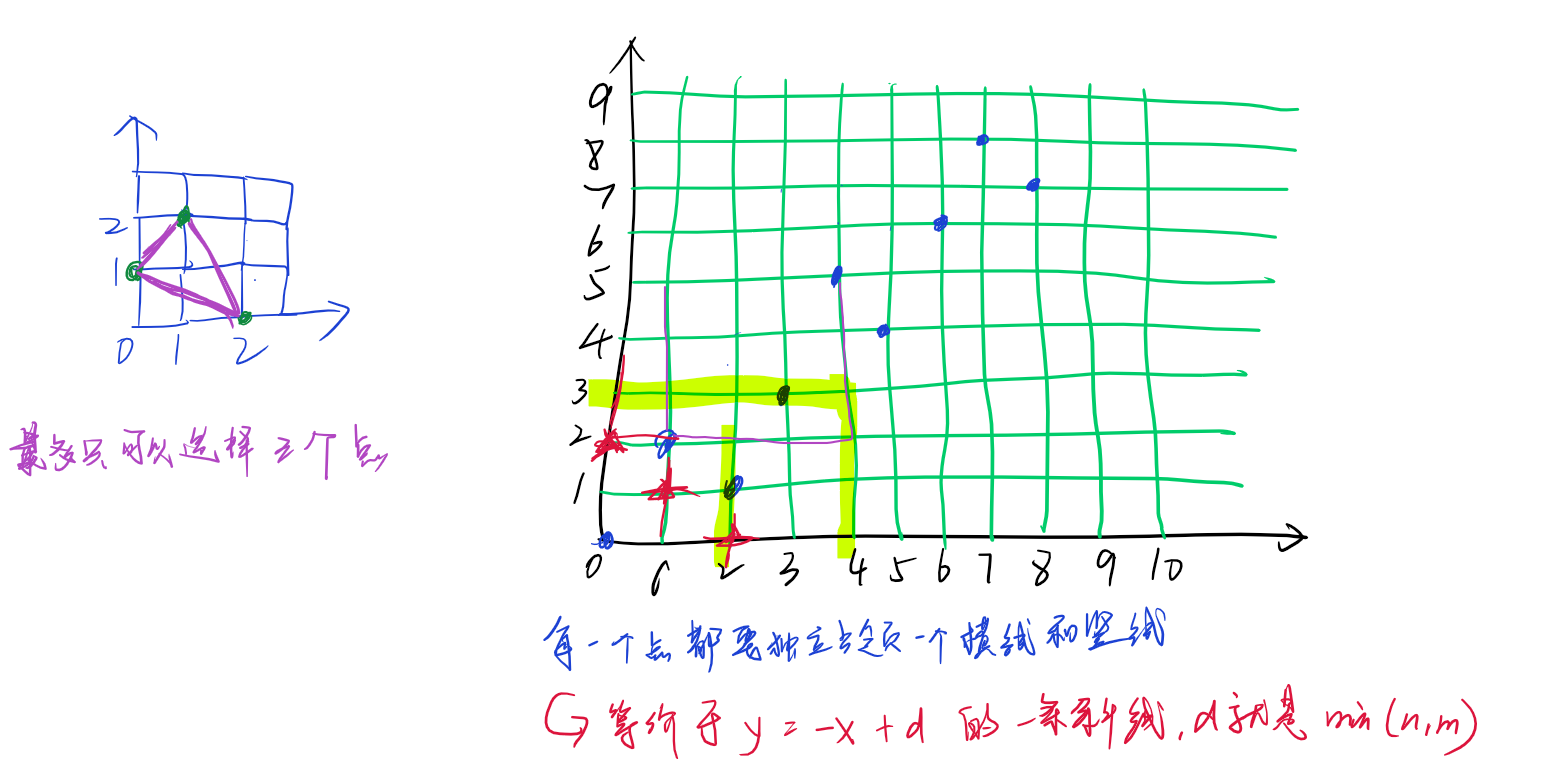 2
1
0 1 2
最多只可以选择三个点
9
8
7
6
5
4
3
2
1
0 1 2 3 4 5 6 7 8 9 10
每一个点都要独立占领一个横线和竖线
等价于 y = -x + d 的一条斜线,d就是 min (n,m)